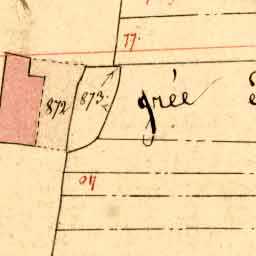 77.
872
873.
grée